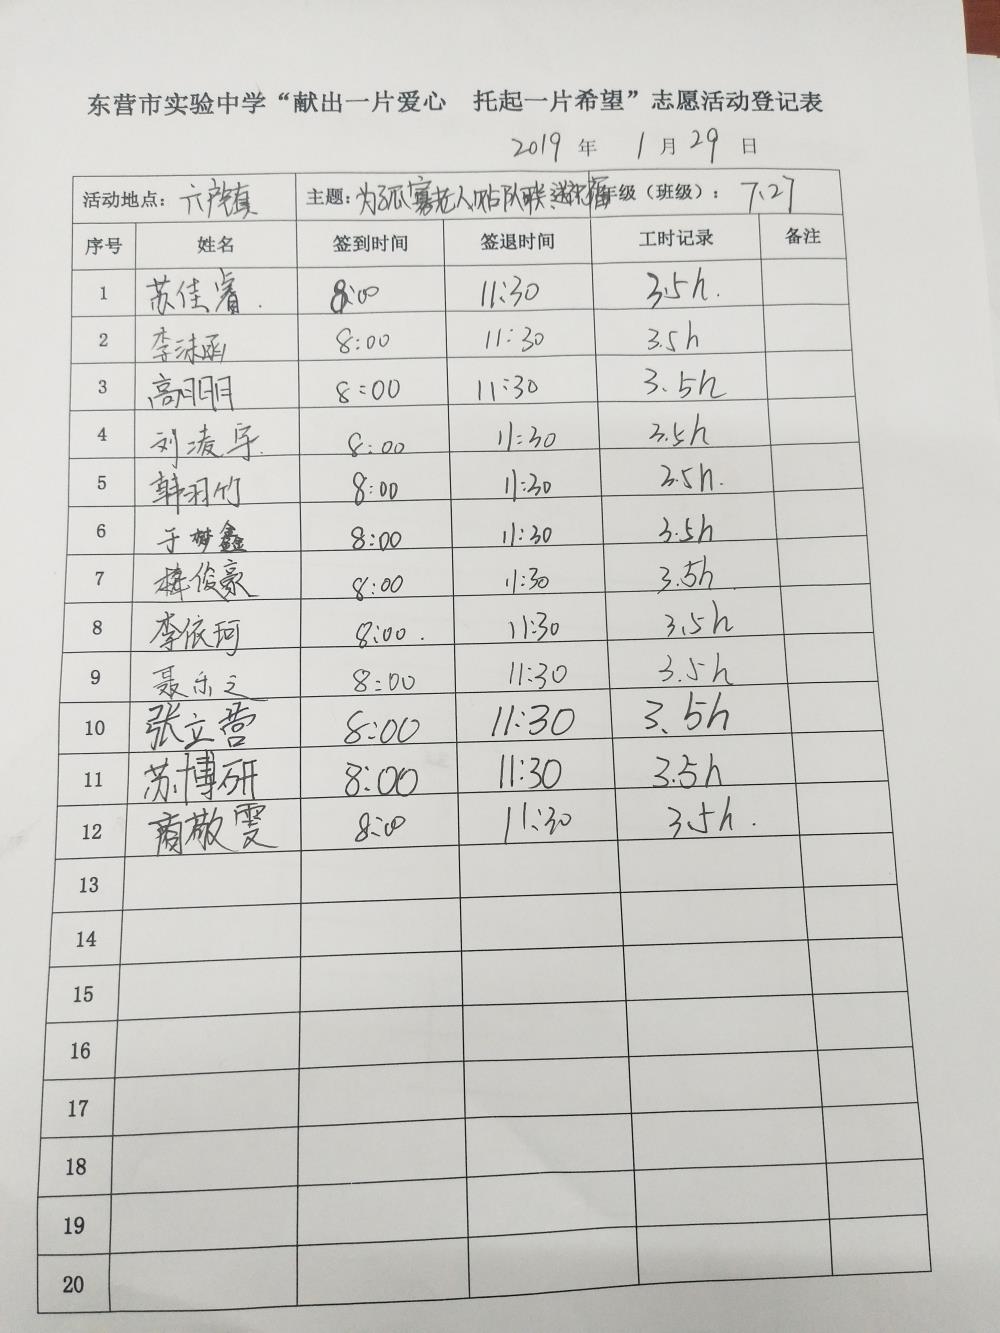 东营市实验中学“献出一片爱心 托起一片希望”志愿活动登记表
2019 年 1 月 29 日
活动地点：六户镇 主题：为孤寡老人贴队联送祝福 年级（班级）：7.27
序号 姓名 签到时间 签退时间 工时记录 备注
1 苏佳睿. 8:00 11:30 3.5h.
2 李沫函 8:00 11:30 3.5h
3 高明明 8:00 11:30 3.5h
4 刘凌宇 8:00 11:30 3.5h
5 韩羽竹 8:00 11:30 3.5h.
6 于梦鑫 8:00 11:30 3.5h
7 俊豪 8:00 11:30 3.5h
8 李依珂 8:00. 11:30 3.5h
9 聂乐之 8:00 11:30 3.5h
10 张立营 8:00 11:30 3.5h
11 苏博研 8:00 11:30 3.5h
12 商敬雯 8:00 11:30 3.5h.
13
14
15
16
17
18
19
20